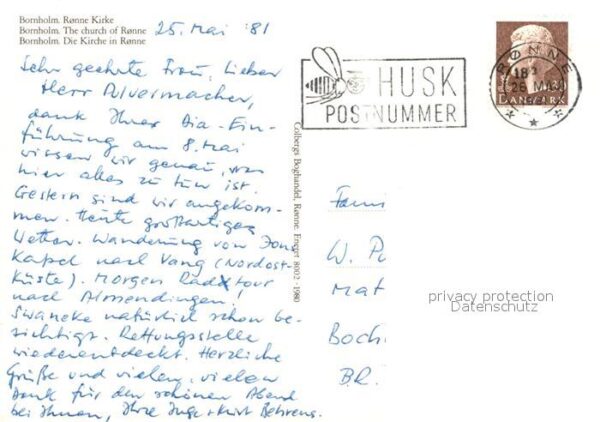 Bornholm. Rønne Kirke
Bornholm. The church of Rønne
Bornholm. Die Kirche in Rønne
25. Mai '81
Sehr geehrte Frau, Lieber
Herr Pulvermacher,
dank Ihrer Dia-Ein-
führung am 8. Mai
wissen wir genau, was
hier alles zu tun ist.
Gestern sind wir angekom-
men. Heute großartiges
Wetter. Wanderung von Jons
Kapel nach Vang (Nordost-
küste). Morgen Radtour
nach Almendingen!
Svaneke natürlich schon be-
sichtigt. Rettungsstelle
wiederentdeckt. Herzliche
Grüße und vielen, vielen
Dank für den schönen Abend
bei Ihnen, Ihre Inge + Kurt Behrens.
Colbergs Boghandel, Rønne. Eneret 8002 - 1980
HUSK
POSTNUMMER
RØNNE
26 MAJ
DANMARK
Fami
W. Pu
Mat
Boch
B.R.
privacy protection
Datenschutz